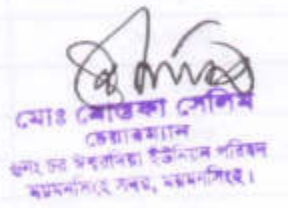 মোঃ মোস্তফা সেলিম
চেয়ারম্যান
চর ঈশ্বরদিয়া ইউনিয়ন পরিষদ
ময়মনসিংহ সদর, ময়মনসিংহ।